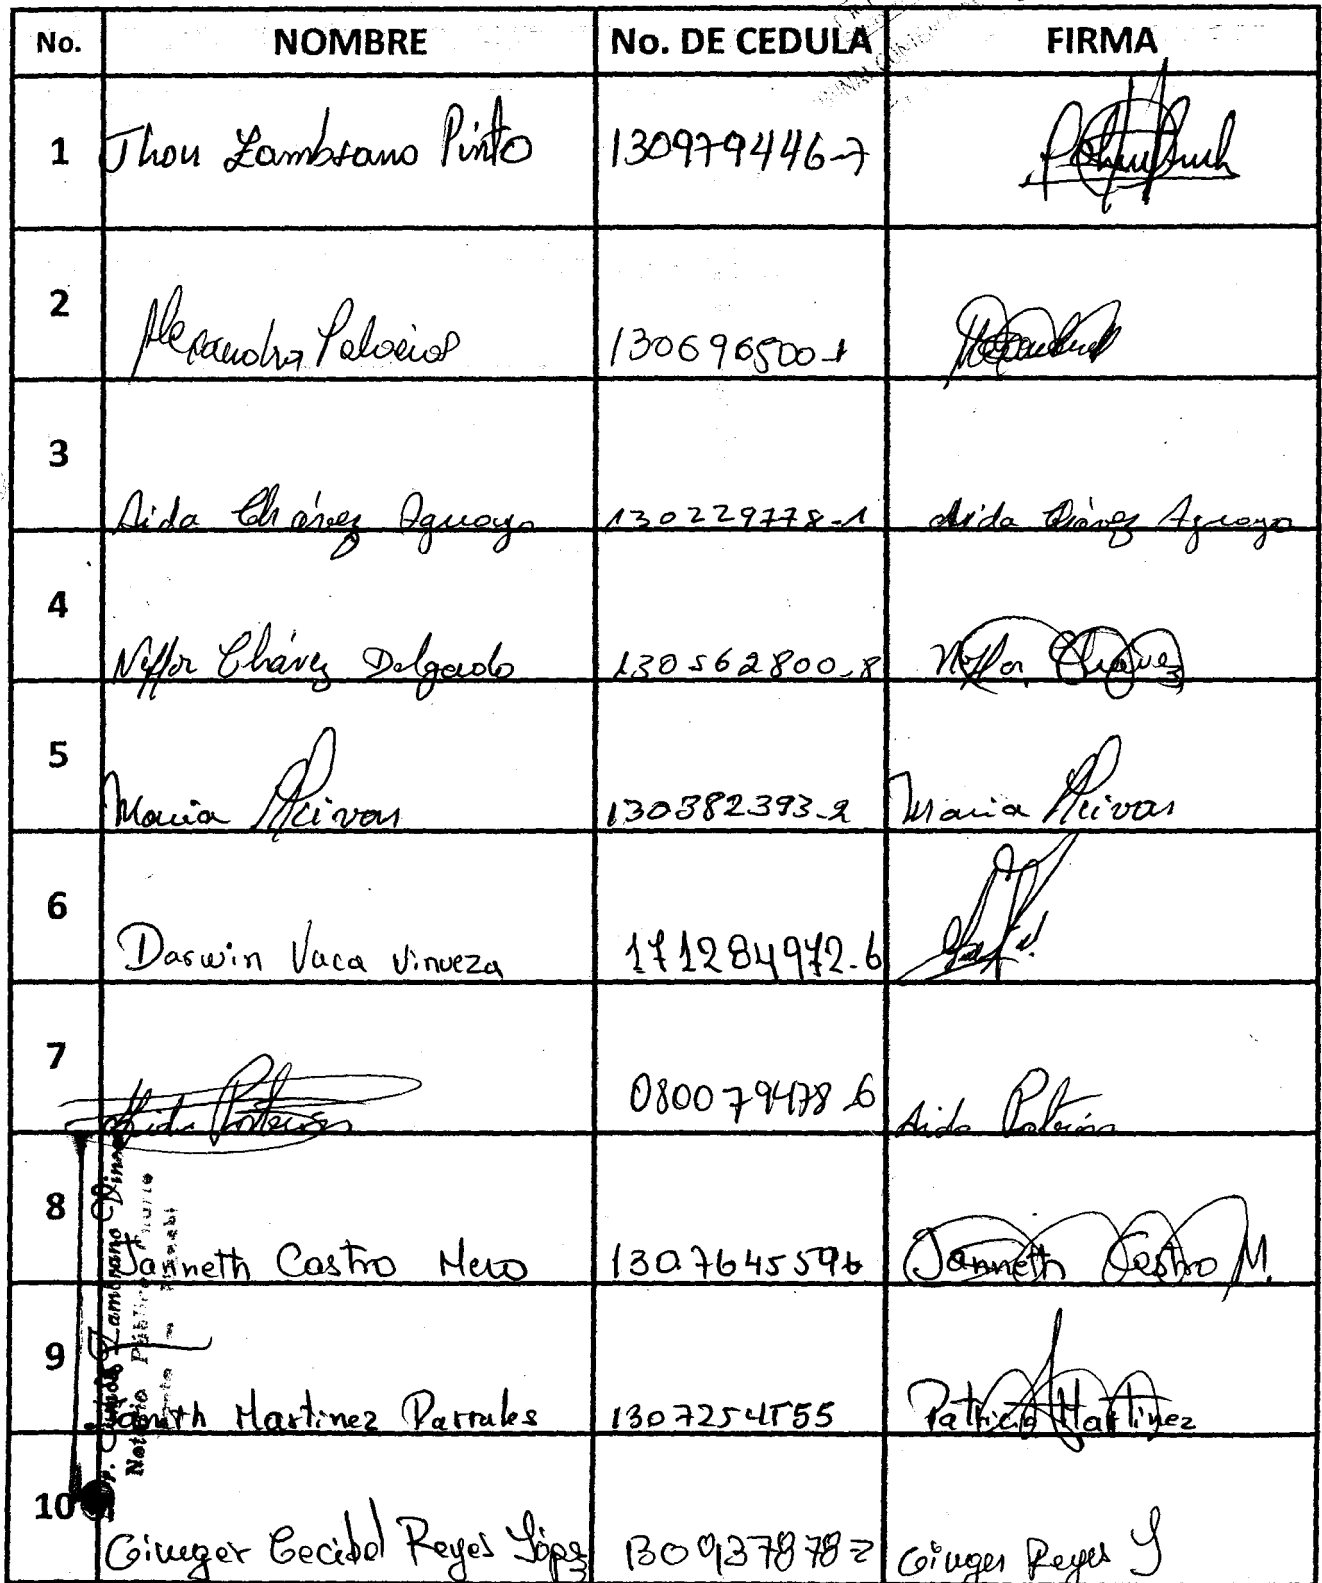 No. NOMBRE No. DE CEDULA FIRMA
1 Jhon Zambrano Pinto 130979446-7
2 Alexandra Palacios 130696500-1
3 Aida Chávez Aguayo 130229778-1 Aida Chávez Aguayo
4 Chávez Delgado 130562800-8 Chávez
5 Maria 130382393-2 Maria
6 Darwin Vaca Vinueza 171284972-6
7 Aida 080079478-6 Aida
8 Janneth Castro Mero 1307645596 Janneth Castro M.
9 Martinez Parrales 1307254555 Patricia Martinez
10 Ginger Cecibel Reyes López 130937878-2 Ginger Reyes
Zambrano